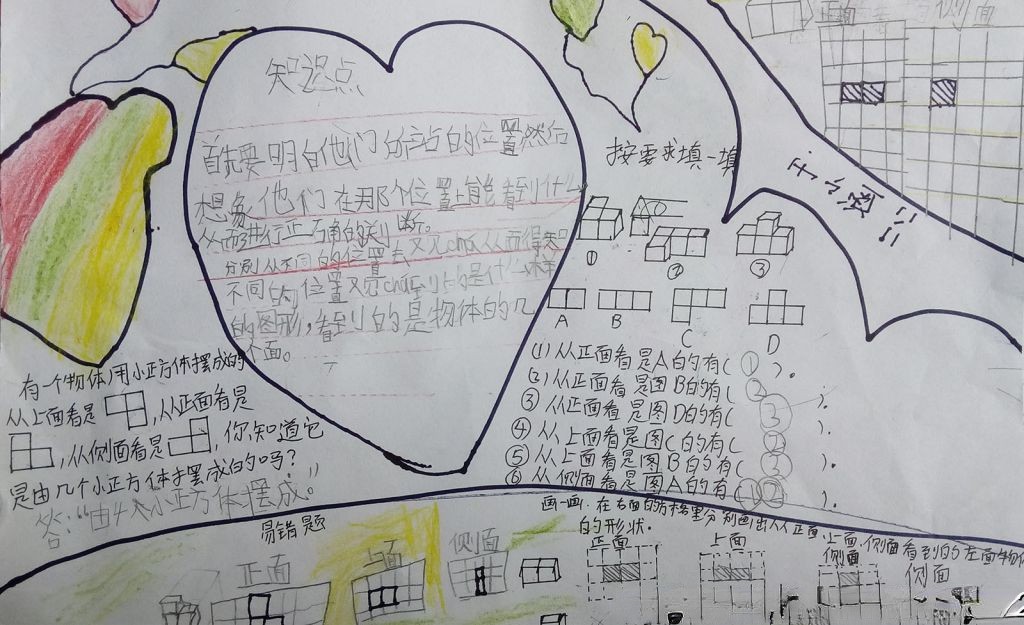 知识点
首先要明白他们所站的位置然后
想象他们在那个位置上能看到什么
从而进行正确的判断。
分别从不同的位置去观cha,从而得知
不同的位置观cha到的是什么样
的图形,看到的是物体的几
个面。
有一个物体,用小正方体摆成的
从上面看是 ,从正面看是
,从侧面看是 ,你知道它
是由几个小正方体摆成的吗?
答:“由4个小正方体摆成。”
按要求填一填
① ② ③
A B C D
(1)从正面看是A的有( ① )。
(2)从正面看是图B的有( ② )。
③从正面看是图D的有( ③ )。
④从上面看是图C的有( ② )。
⑤从上面看是图B的有( ③ )。
⑥从侧面看是图A的有(①② )。
正面 侧面
易错题
正面 上面 侧面
画一画,在右面的方格里分别画出从正面,上面,侧面看到的左面物体
的形状。
正面 上面 侧面 侧面